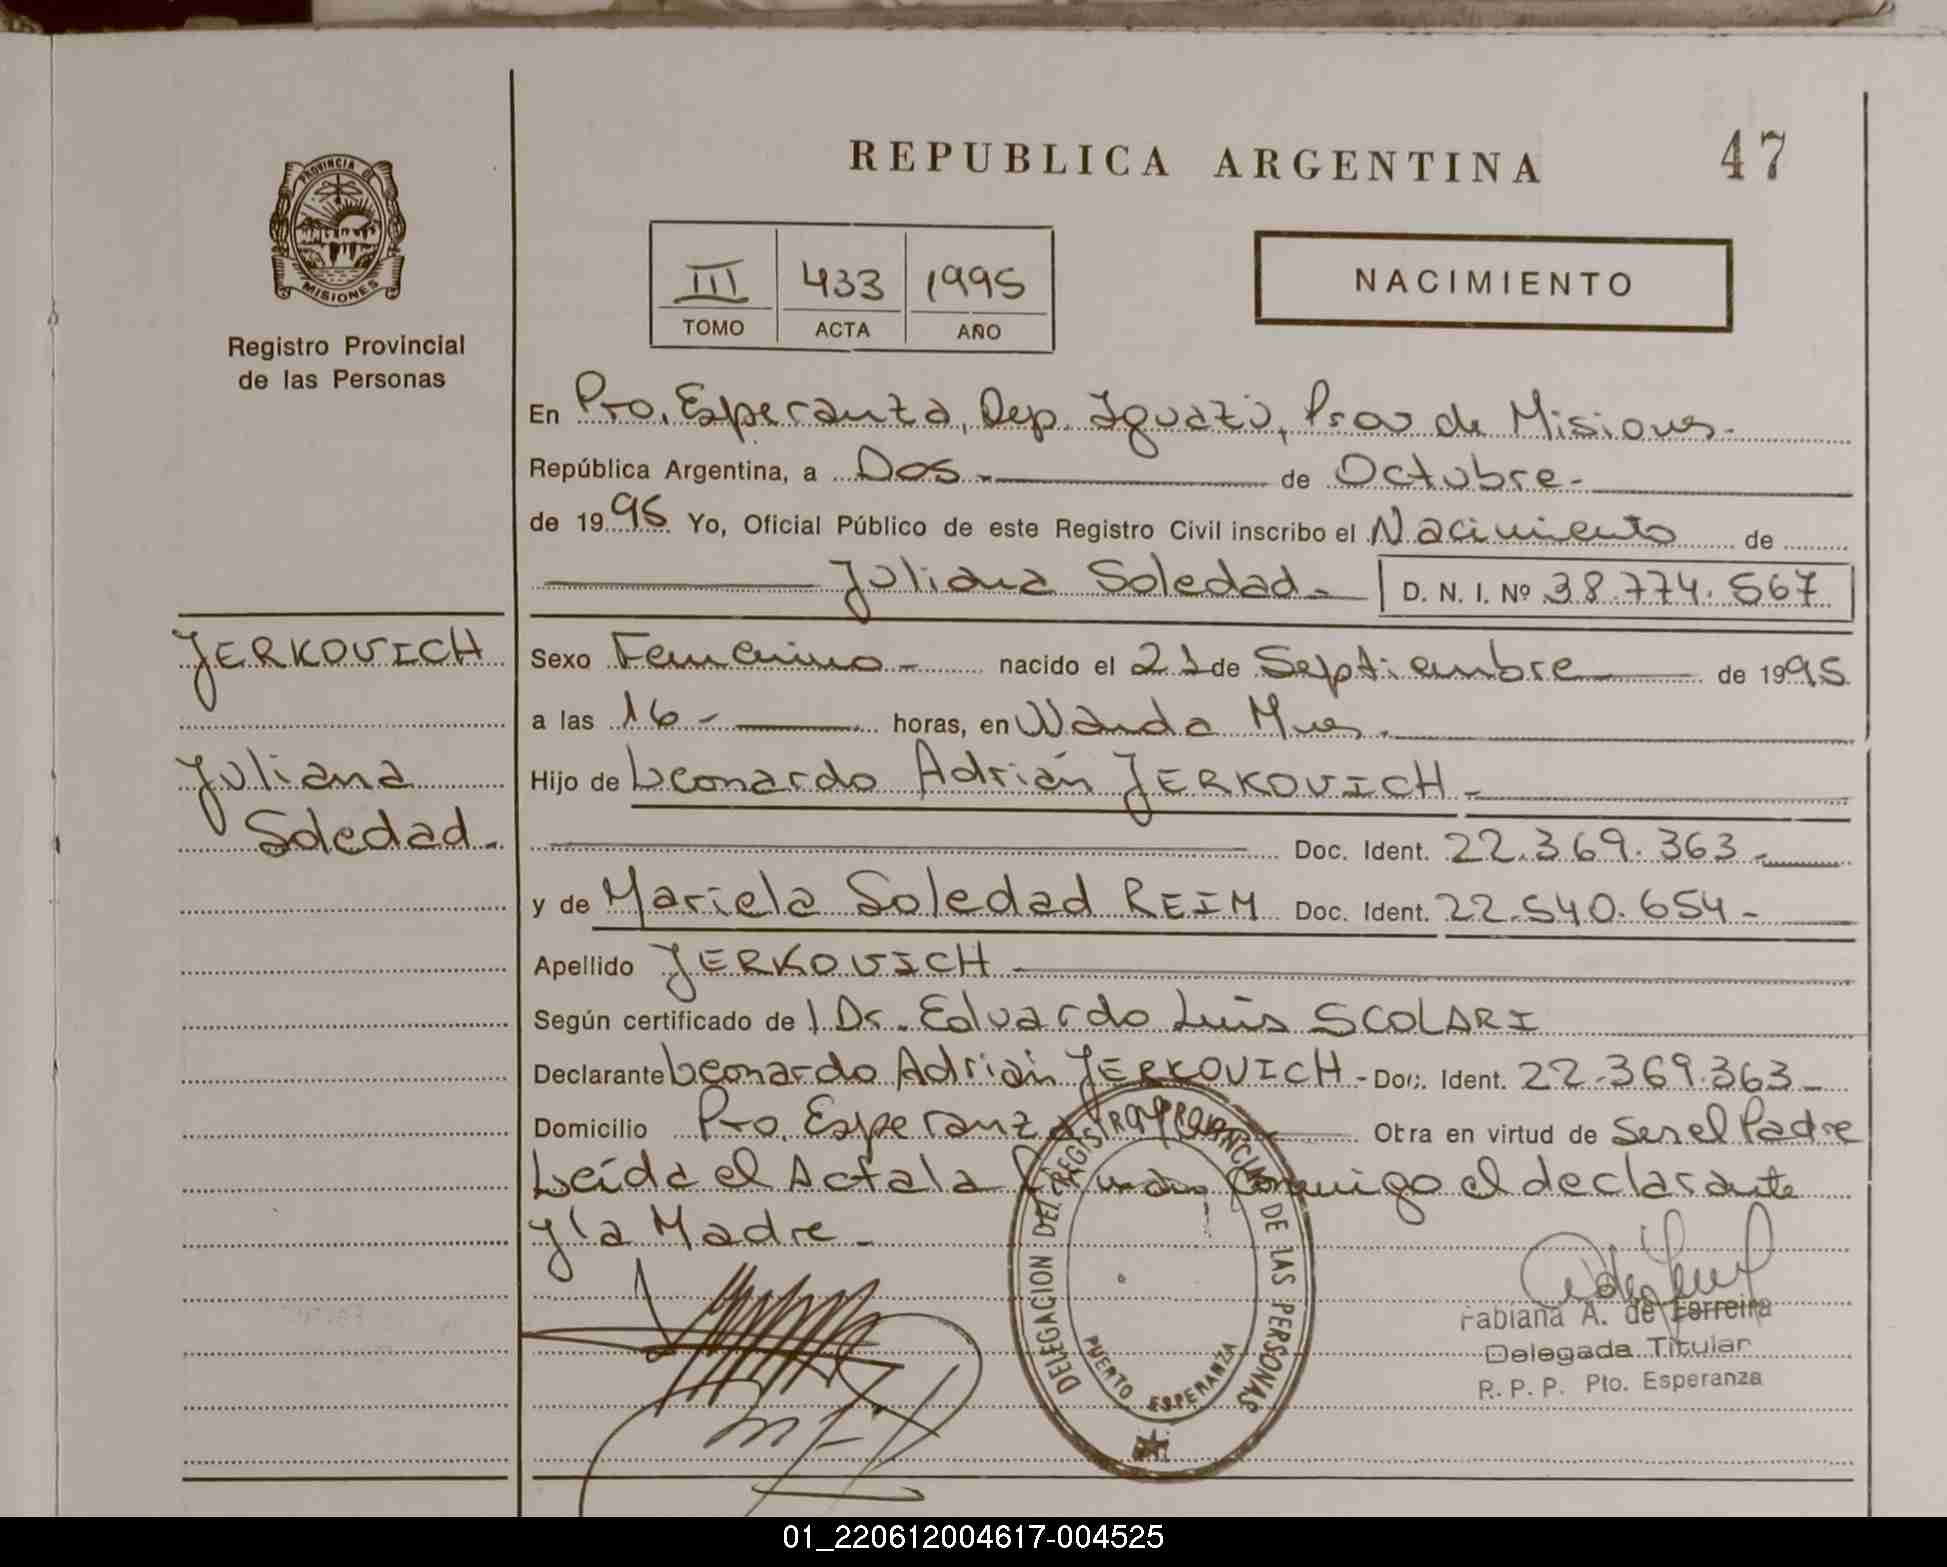 REPUBLICA ARGENTINA
47
PROVINCIA DE
MISIONES
Registro Provincial
de las Personas
III 433 1995
TOMO ACTA AÑO
NACIMIENTO
En Pto. Esperanza, Dep. Iguazú, Prov de Misiones.
República Argentina, a Dos de Octubre
de 1995 Yo, Oficial Público de este Registro Civil inscribo el Nacimiento de
Juliana Soledad D. N. I. Nº 38.774.567
JERKOVICH
Juliana
Soledad.
Sexo Femenino nacido el 21 de Septiembre de 1995
a las 16 horas, en Wanda Mnes.
Hijo de Leonardo Adrián JERKOVICH
Doc. Ident. 22.369.363
y de Mariela Soledad REIM Doc. Ident. 22.540.654
Apellido JERKOVICH
Según certificado de l Dr. Eduardo Luis SCOLARI
Declarante Leonardo Adrián JERKOVICH Doc. Ident. 22.369.363
Domicilio Pto. Esperanza Obra en virtud de Ser el Padre
Leída el Acta la firman conmigo el declarante
y la Madre
DELEGACION DEL REGISTRO PROVINCIAL DE LAS PERSONAS
PUERTO ESPERANZA
Fabiana A. de Ferreira
Delegada Titular
R. P. P. Pto. Esperanza
01_220612004617-004525